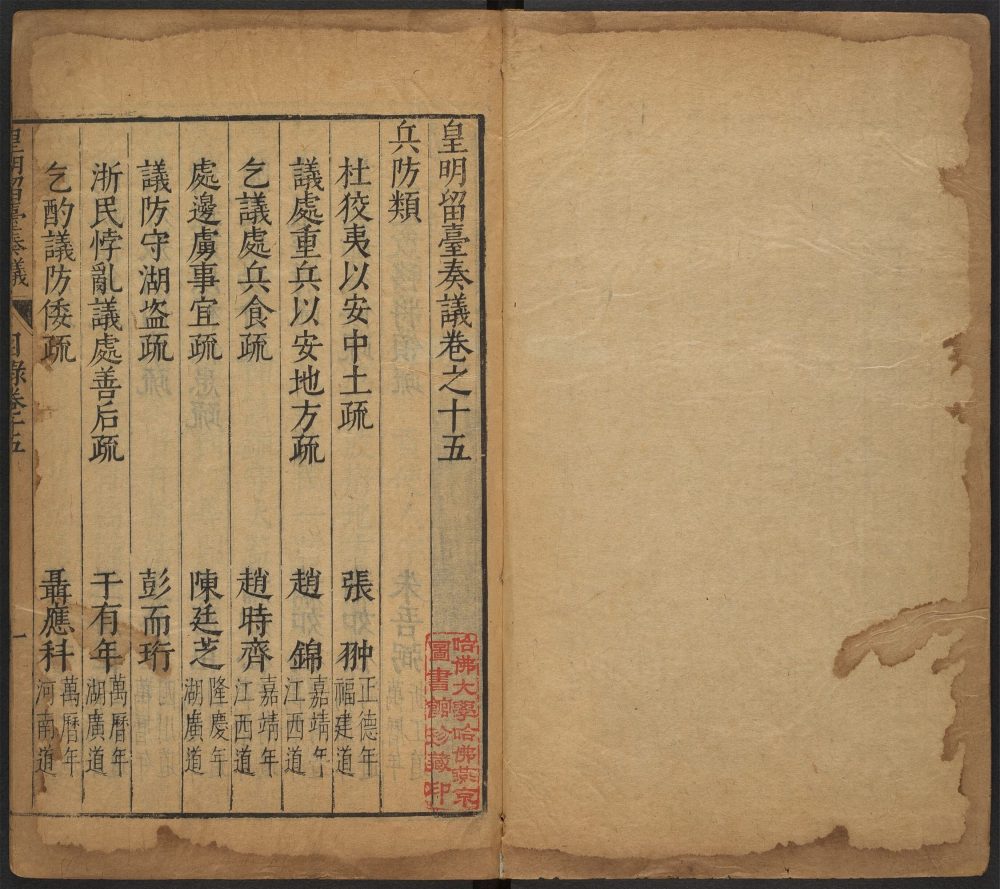 皇明留臺奏議卷之十五
兵防類
杜狡夷以安中土疏 張翀 正德年 福建道
議處重兵以安地方疏 趙錦 嘉靖年 江西道
乞議處兵食疏 趙時齊 嘉靖年 江西道
處邊虜事宜疏 陳廷芝 隆慶年 湖廣道
議防守湖盗疏 彭而珩
浙民悖亂議處善后疏 于有年 萬曆年 湖廣道
乞酌議防倭疏 聶應科 萬曆年 河南道
皇明留臺奏議 目錄卷十五 一
哈佛大學哈佛燕京
圖書館珍藏印